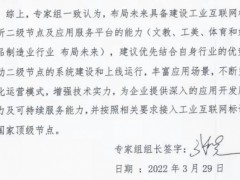 综上，专家组一致认为，布局未来具备建设工业互联网标
析二级节点及应用服务平台的能力（文教、工美、体育和娱
品制造业行业 布局未来），建议优先结合自身行业的优势
动二级节点的系统建设和上线运行，丰富应用场景，不断
化运营模式，增强技术实力，为企业提供深入的应用开发
力及可持续服务能力，并按照相关要求接入工业互联网标识
国家顶级节点。
专家组组长签字：
日期：2022 年 3 月 29 日